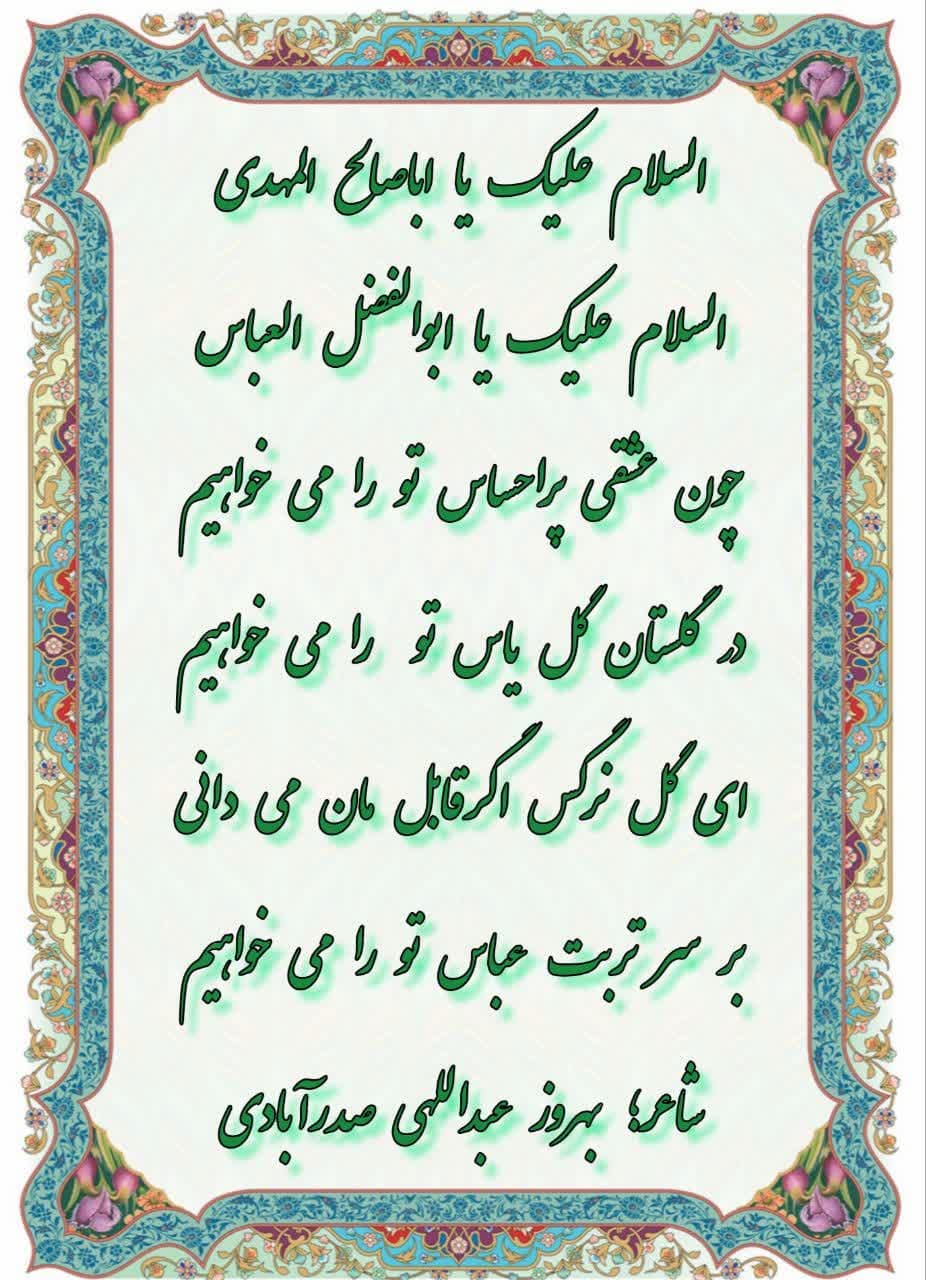 السلام علیک یا اباصالح المهدی
السلام علیک یا ابوالفضل العباس
چون عشقی پراحساس تو را می خواهیم
در گلستان گل یاس تو را می خواهیم
ای گل نرگس اگرقابل مان می دانی
بر سر تربت عباس تو را می خواهیم
شاعر؛ بهروز عبداللهی صدرآبادی